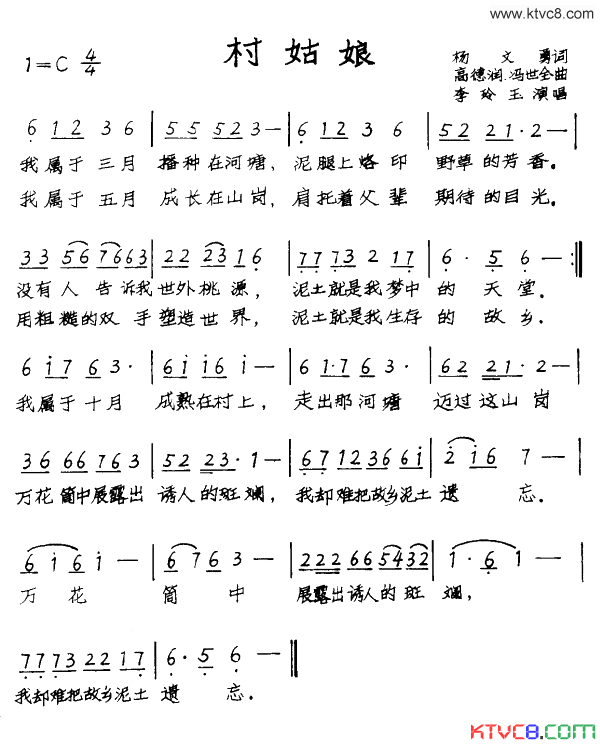 www.ktvc8.com
村姑娘
1=C 4/4
杨文勇词
高德润.冯世全曲
李玲玉演唱
6 12 3 6 | 55 5523— | 6 123 6 | 52 22 1·2— |
我属于三月 播种在河塘，泥腿上烙印 野草的芳香。
我属于五月 成长在山岗，肩托着父辈 期待的目光。
33 567663 | 22 2316 | 7773 2 17 | 6· 5 6— :||
没有人告诉我世外桃源，泥土就是我梦中的天堂。
用粗糙的双手塑造世界，泥土就是我生存的故乡。
6 i763· | 6i i6 i— | 6 i·763· | 62 221·2— |
我属于十月 成熟在村上，走出那河塘 迈过这山岗
36 66763 | 52 23·1— | 6712366i | 2i6 7— |
万花筒中展露出诱人的斑斓，我却难把故乡泥土遗忘。
6i6i— | 6763— | 222665432 | 1·6 1— |
万花筒中 展露出诱人的斑斓，
777322 17 | 6·5 6— ||
我却难把故乡泥土遗忘。
KTVC8.COM